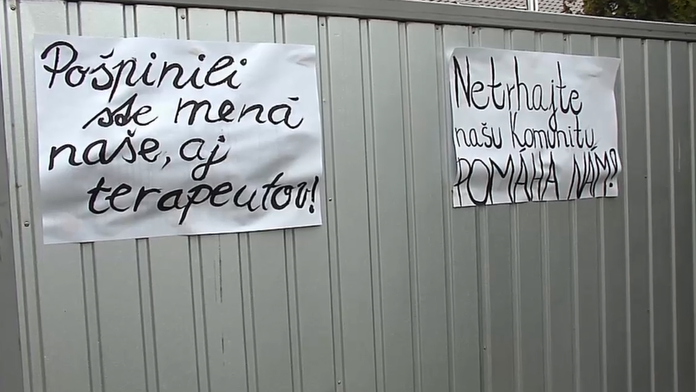 Pošpinili
ste mená
naše, aj
terapeutov!
Netrhajte
našu Komunitu
POMÁHA NÁM!